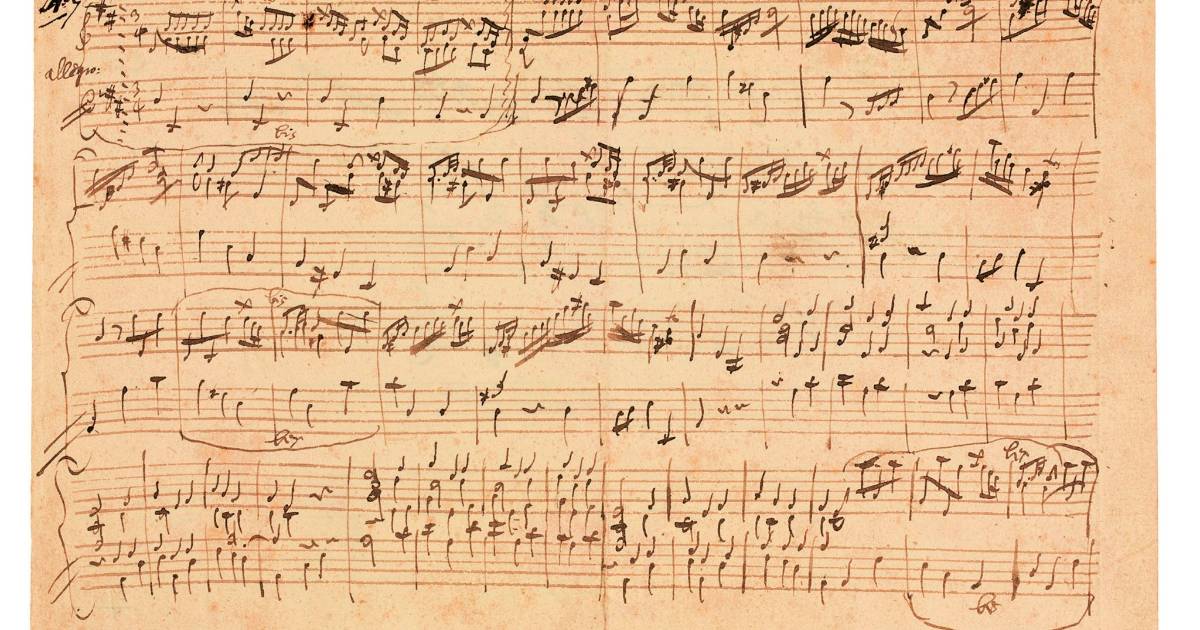 allegro:
bis
bis
bis
bis
bis